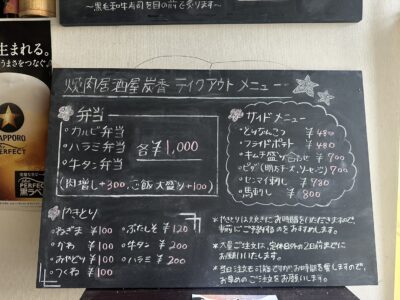 ～黒毛和牛寿司を目の前で炙ります～
生まれる。
うまさをつなぐ
SAPPORO
PERFECT
焼肉居酒屋炭香 テイクアウトメニュー
弁当
・カルビ弁当
・ハラミ弁当 各¥1,000
・牛タン弁当
(肉増し+300、ご飯大盛り+100)
サイドメニュー
・とりなんこつ ¥480
・フライドポテト ¥480
・キムチ盛り合わせ ¥700
・ピザ(明太チーズ、ソーセージ) 700
・センマイ刺し ¥780
・馬刺し ¥800
やきとり
・ねぎま ¥100
・かわ ¥100
・みやどり ¥100
・つくね ¥100
・ぶたしそ ¥120
・牛タン ¥200
・ハラミ ¥200
※やきとりは大変にお時間をいただきますので、
事前にご予約するのをおすすめします。
※大量ご注文は、定休日外の2日前までに
お願いいたします。
お早めのご注文をお願いします。